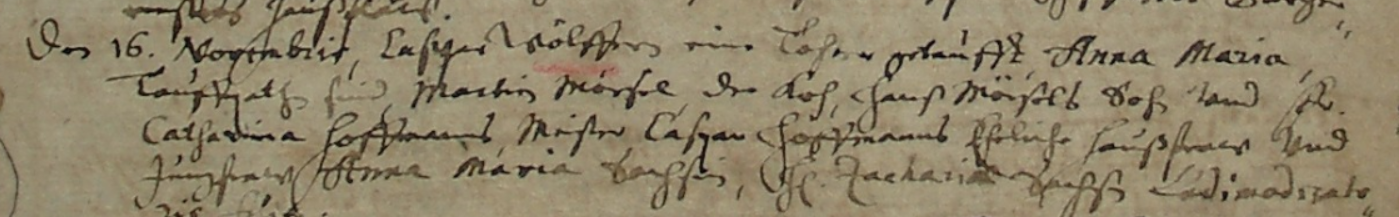 Den 16. Novembris, Caspar Wölffern eine Tochter getaufft, Anna Maria,
Tauffpathen sind, Martin Mörsel, der Koch, Hanß Möisels Sohn Und Fr.
Catharina Hoffmanns, Meister Caspar Hoffmanns Eheliche Haußfraw Und
Jungfraw Anna Maria Sachsin, H. Zachariae Sachsen Ludimoderato